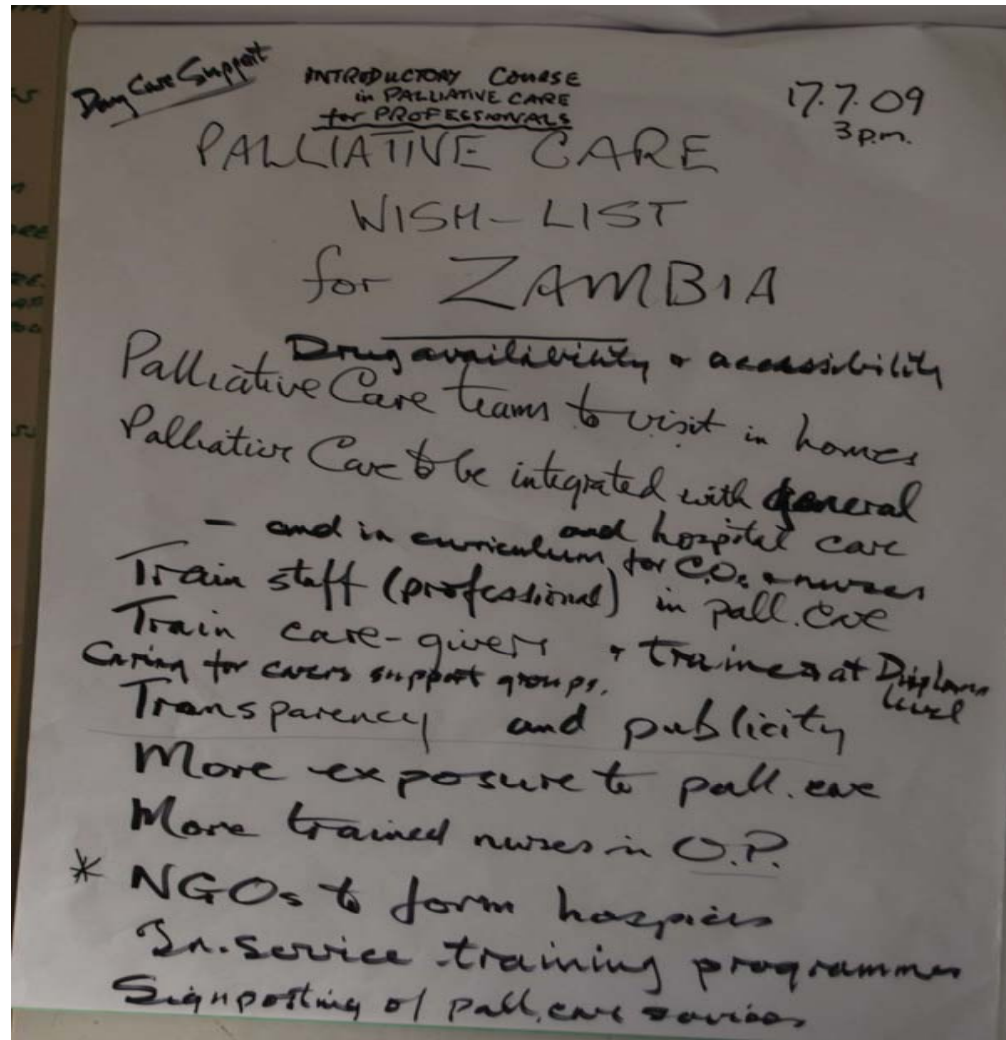 Day Care Support
INTRODUCTORY COURSE
in PALLIATIVE CARE
for PROFESSIONALS
17.7.09
3 p.m.
PALLIATIVE CARE
WISH-LIST
for ZAMBIA
Drug availibility + accessibility
Palliative Care teams to visit in homes
Palliative Care to be integrated with general
and hospital care
- and in curriculum for C.O.s + nurses
Train staff (professional) in pall. care
Train care-givers + trainers at Diploma
level
Caring for carers support groups.
Transparency and publicity
More exposure to pall. care
More trained nurses in O.P.
* NGOs to form hospices
In-service training programmes
Signposting of pall. care services